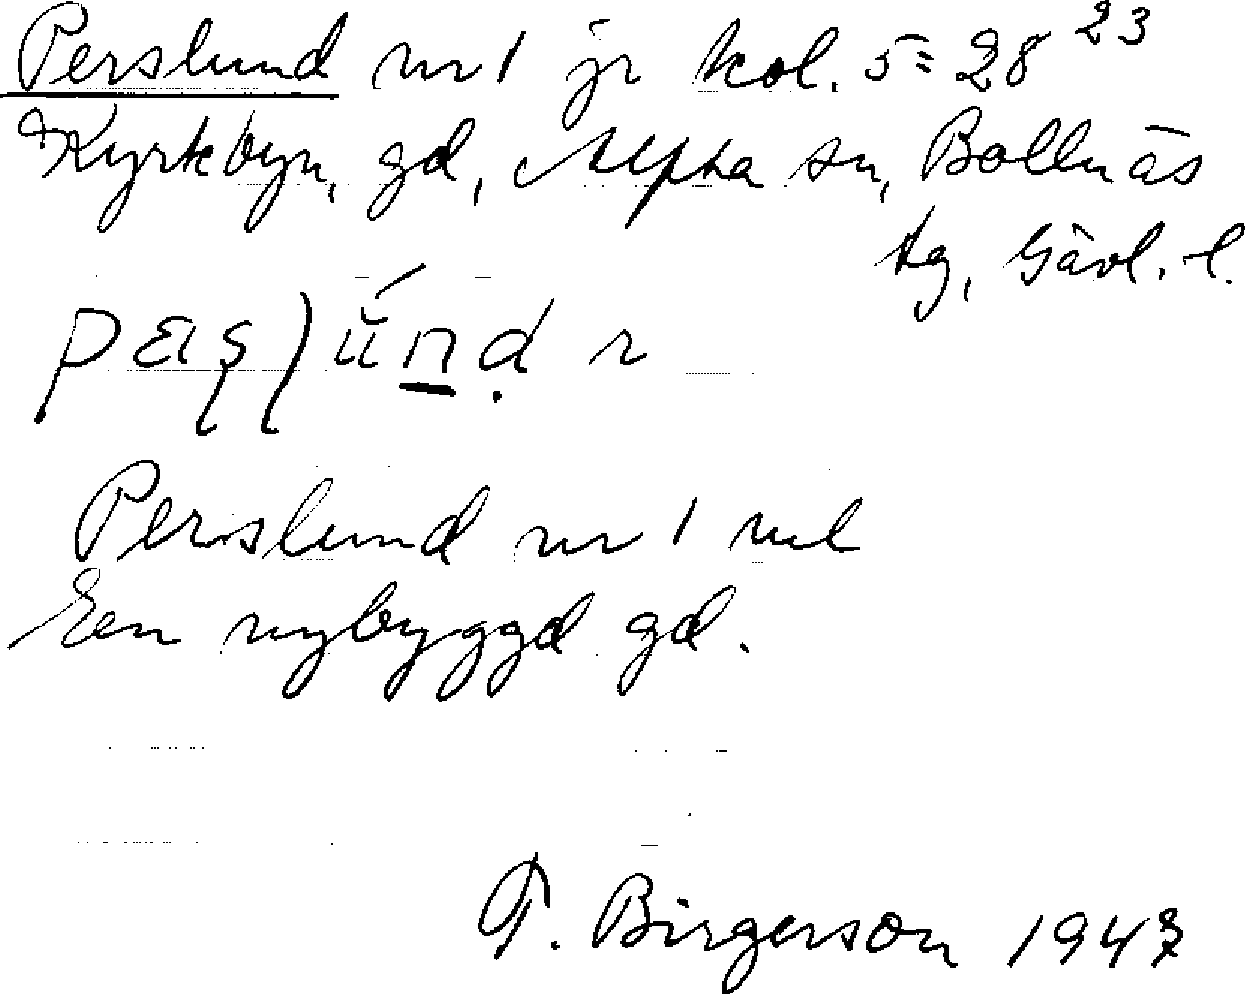 Perslund nr 1 jr kol. 5 = 28 23
Kyrkbyn, gd, Alfta sn, Bollnäs
tg, Gävl. l.
Perslund nr 1 ml
En nybyggd gd.
T. Birgerson 1947